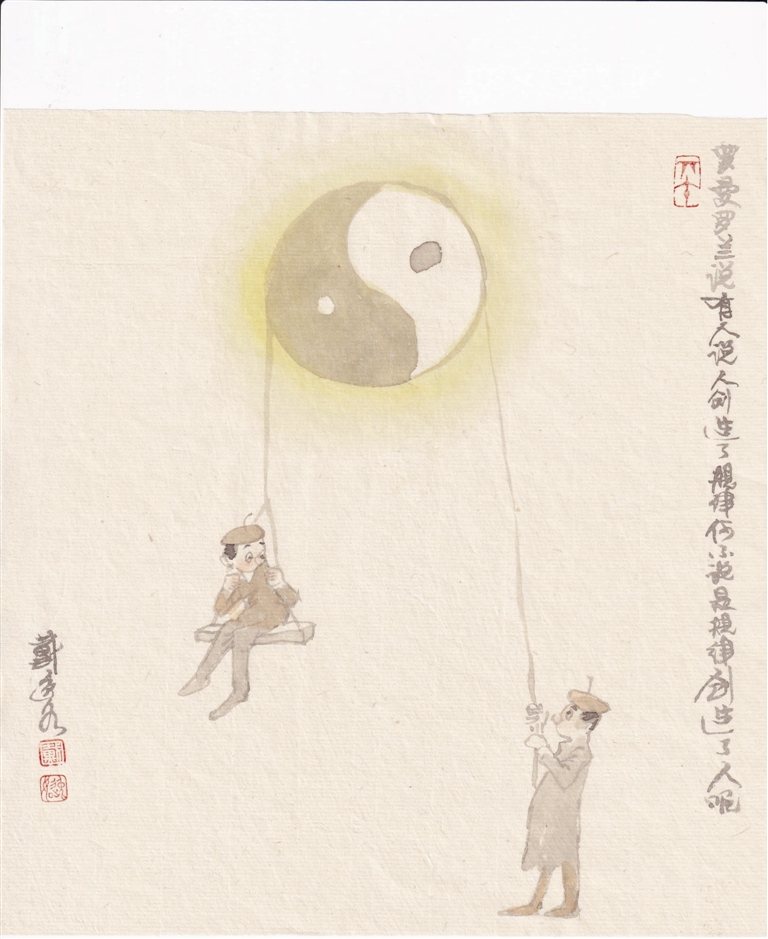 罗曼罗兰说有人说人创造了规律何不说是规律创造了人呢
戴逸如